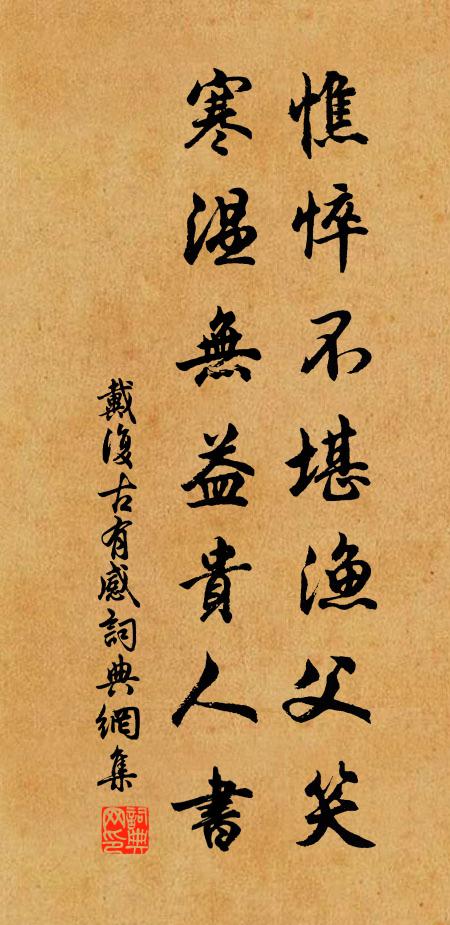 憔悴不堪漁父笑
寒温無益貴人書
戴復古有感詞典網集
詞典网印